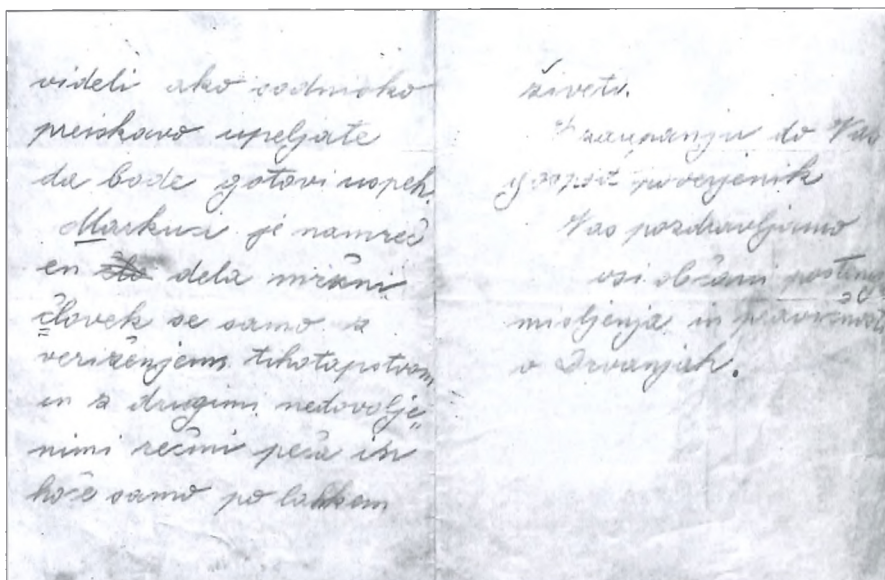 videli ako sodnisko
preiskavo upeljate
da bode gotovi uspeh.
Markuci je namreč
en dela mržni
človek se samo z
veriženjem tihotapstvom
in z drugimi nedovolje„
nimi rečmi peča in
hoče samo po lahkem
živeti.
V zaupanju do Vas
gospod poverjenik
Vas pozdravljamo
vsi občani poštenega
mišljenja in pravičnosti
v Drvanjah.